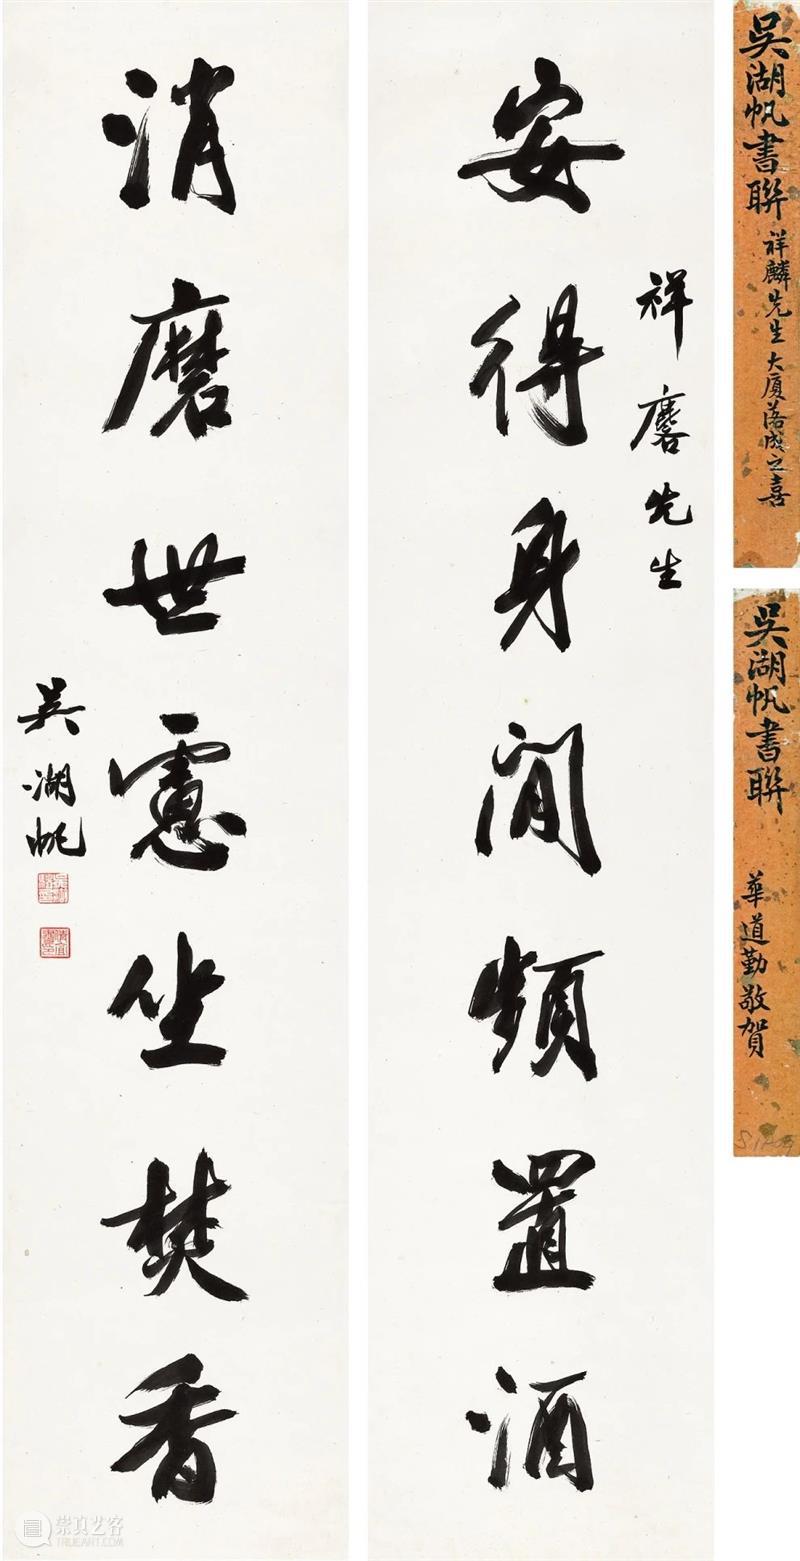 吳湖帆書聯
祥麟先生大廈落成之喜
吳湖帆書聯
華道勤敬賀
祥麐先生
安得身閒頻置酒
消磨世慮坐焚香
吳湖帆
崇真艺客
TRUEART.COM